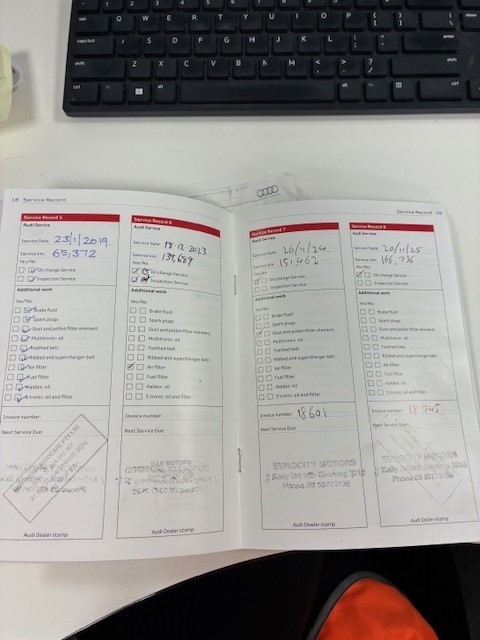 18 Service Record
Service Record 5
Audi Service
Service Date: 23/1/2019
Service km: 65,372
Yes/No
Oil change Service
Inspection Service
Additional work
Yes/No
Brake fluid
Spark plugs
Dust and pollen filter element
Multitronic: oil
Toothed belt
Ribbed and supercharger belt
Air filter
Fuel filter
Haldex: oil
S tronic: oil and filter
Invoice number:
Next Service Due:
Audi Dealer stamp
Service Record 6
Audi Service
Service Date: 18.12.2023
Service km: 139,689
Yes/No
Oil change Service
Inspection Service
Additional work
Yes/No
Brake fluid
Spark plugs
Dust and pollen filter element
Multitronic: oil
Toothed belt
Ribbed and supercharger belt
Air filter
Fuel filter
Haldex: oil
S tronic: oil and filter
Invoice number:
Next Service Due:
MOTORS
Audi Dealer stamp
Service Record 19
Service Record 7
Audi Service
Service Date: 26/11/24
Service km: 151,462
Yes/No
Oil change Service
Inspection Service
Additional work
Yes/No
Brake fluid
Spark plugs
Dust and pollen filter element
Multitronic: oil
Toothed belt
Ribbed and supercharger belt
Air filter
Fuel filter
Haldex: oil
S tronic: oil and filter
Invoice number: 18601
Next Service Due:
EUROCITY MOTORS
Audi Dealer stamp
Service Record 8
Audi Service
Service Date: 20/11/25
Service km: 166,736
Yes/No
Oil change Service
Inspection Service
Additional work
Yes/No
Brake fluid
Spark plugs
Dust and pollen filter element
Multitronic: oil
Toothed belt
Ribbed and supercharger belt
Air filter
Fuel filter
Haldex: oil
S tronic: oil and filter
Invoice number:
Next Service Due:
EUROCITY MOTORS
Audi Dealer stamp